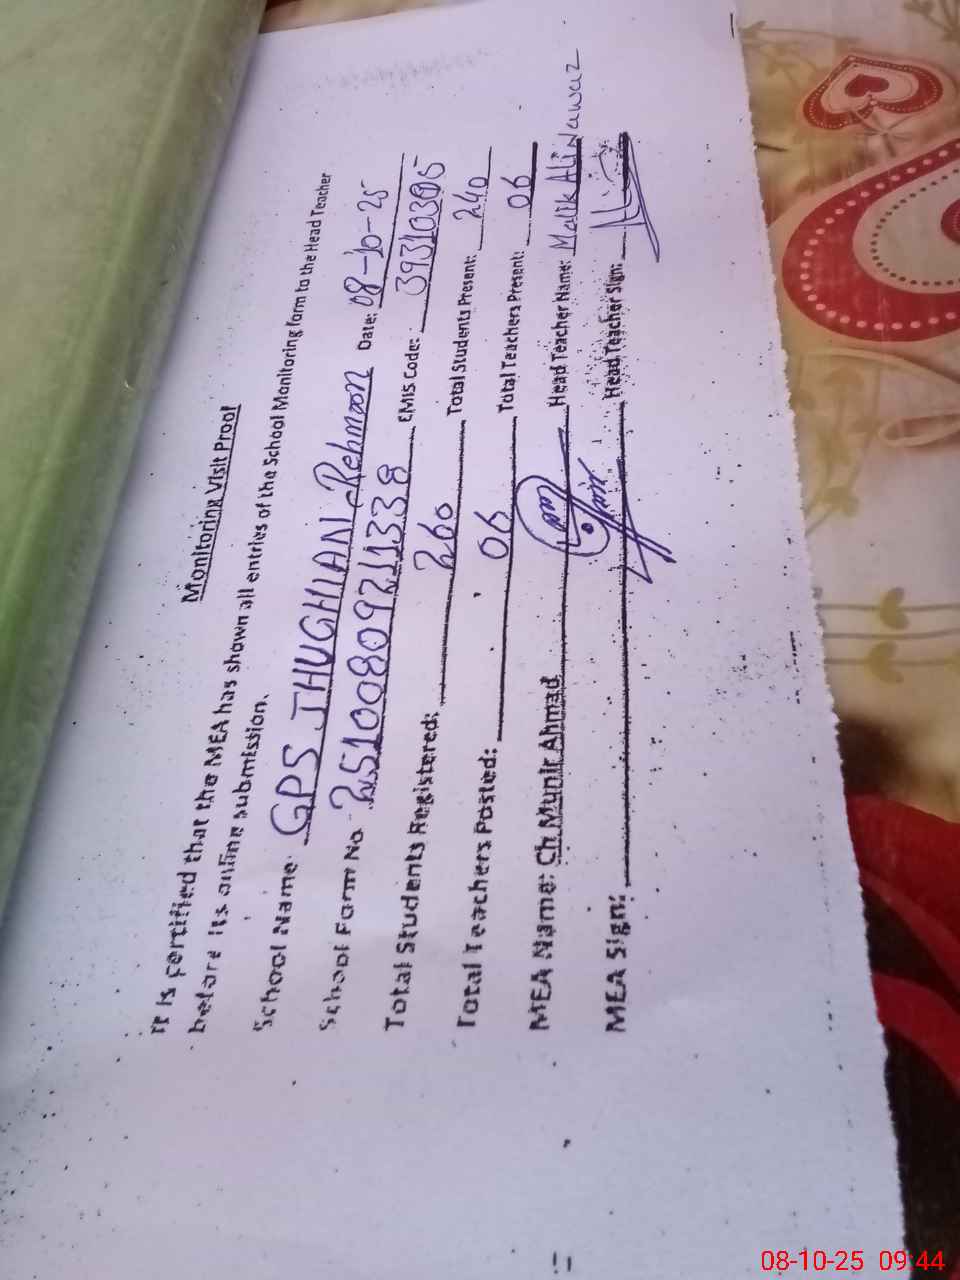 Monitoring Visit Proof
It is certified that the MEA has shown all entries of the School Monitoring form to the Head Teacher
before its online submission.
School Name: GPS JHUGHIAN Rehman Date: 08-10-25
School Form No 25100809211338 EMIS Code: 39310305
Total Students Registered: 260 Total Students Present: 240
Total Teachers Posted: 06 Total Teachers Present: 06
MEA Name: Ch Munir Ahmad Head Teacher Name: Malik Ali Nawaz
MEA Sign: Head Teacher Sign:
08-10-25 09:44